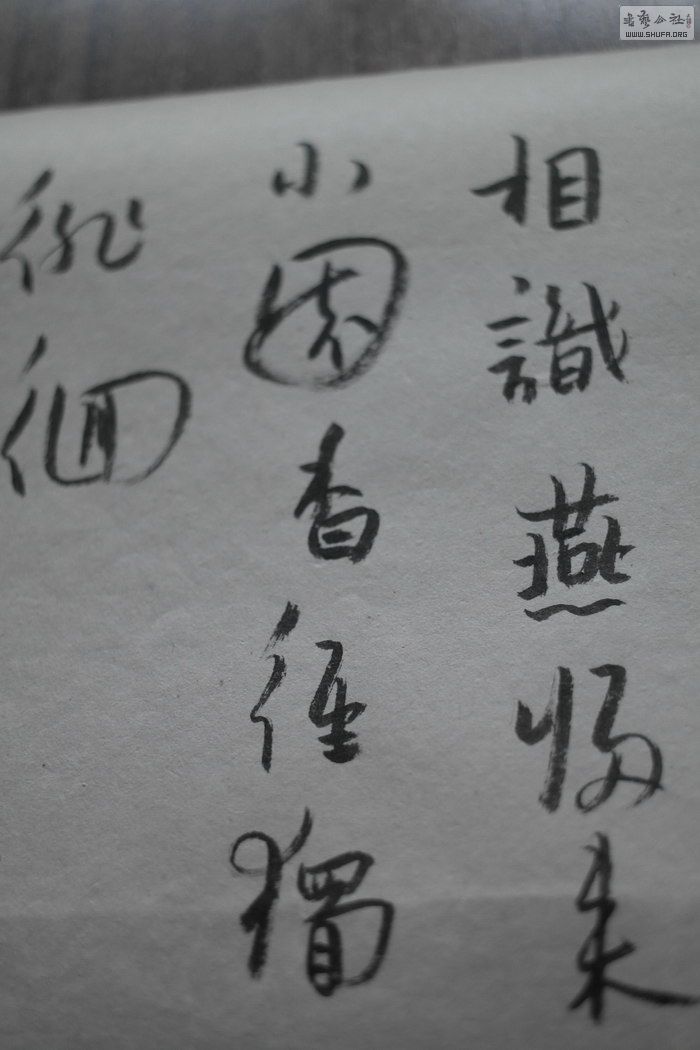 相識燕歸來
小園香徑獨
徘徊
書藝公社
WWW.SHUFA.ORG